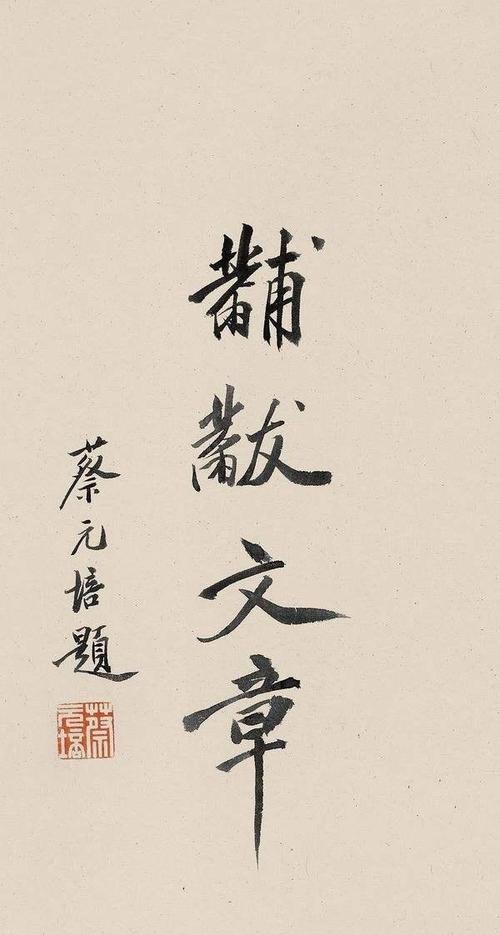 黼黻文章
蔡元培題
蔡元培